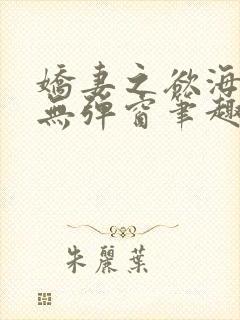 嬌妻之慾海
無彈窗筆趣
朱麗葉